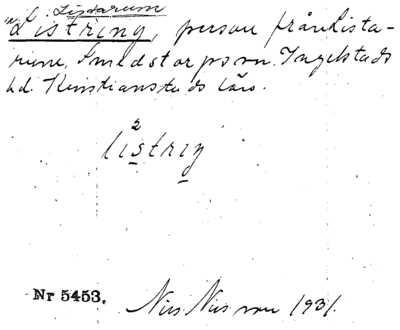 Listring, person från Lista-
rum, Smedstorps sn. Ingelstads
hd. Kristianstads län.
2
listrıŋ
Nr 5453.
Nils Nilsson 1931.